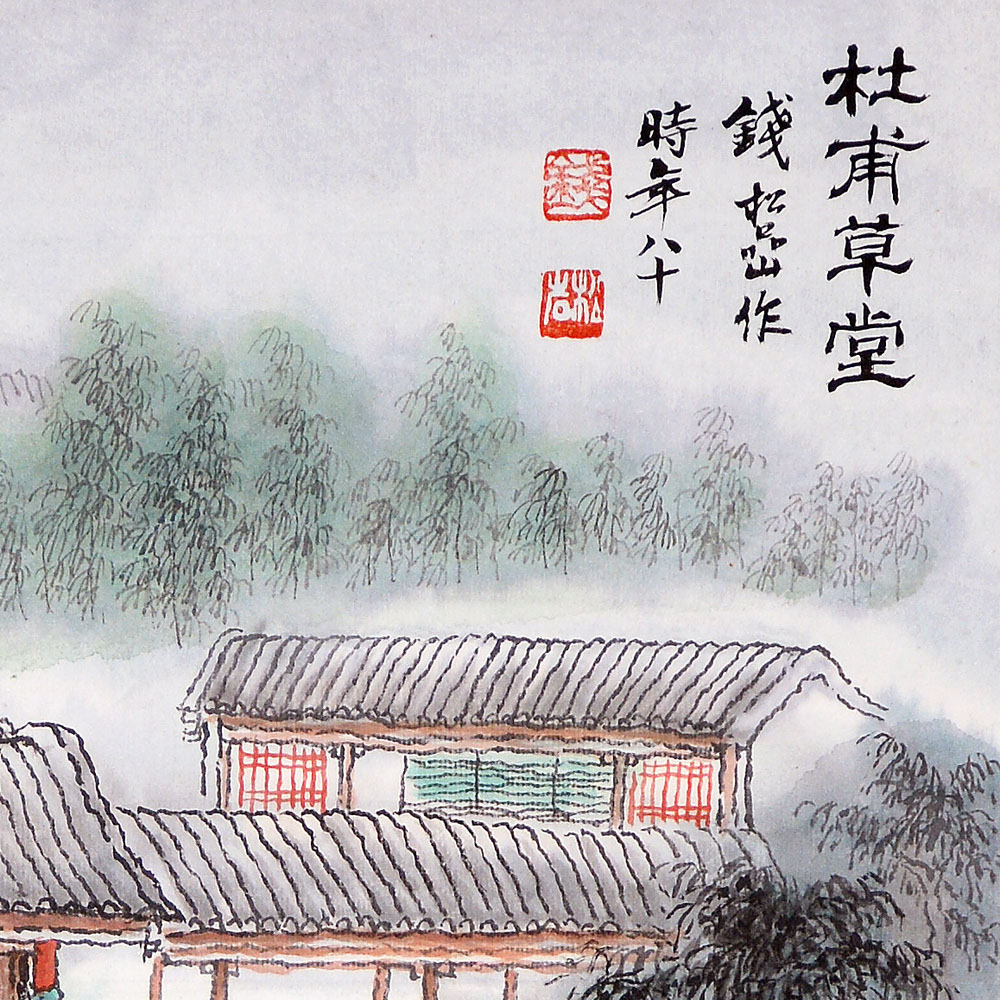 杜甫草堂
錢松嵒作
時年八十
錢
松岩